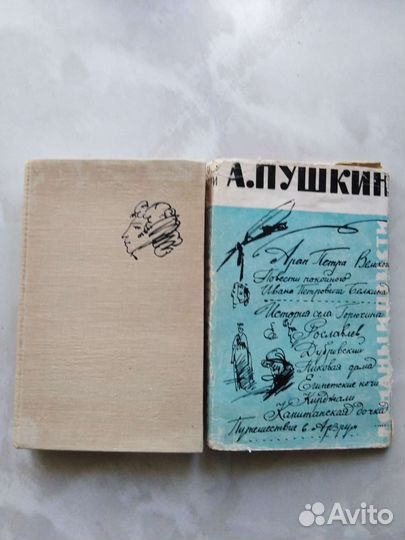 А.ПУШКИН
Арап Петра Велико
Повести покойного
Ивана Петровича Белкина
История села Горюхина
Рославлев
Дубровский
Пиковая дама
Египетские ночи
Кирджали
Капитанская дочка
Путешествие в Арзрум
Avito